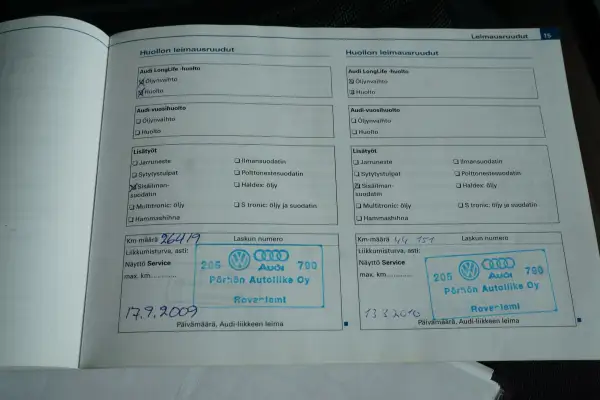 Leimausruudut 15
Huollon leimausruudut
Audi LongLife -huolto
Öljynvaihto
Huolto
Audi-vuosihuolto
❑ Öljynvaihto
❑ Huolto
Lisätyöt
❑ Jarruneste ❑ Ilmansuodatin
❑ Sytytystulpat ❑ Polttonestesuodatin
Sisäilman- ❑ Haldex: öljy
suodatin
❑ Multitronic: öljy ❑ S tronic: öljy ja suodatin
❑ Hammashihna
Km-määrä 26419 Laskun numero
Liikkumisturva, asti:
Näyttö Service
max. km............
205 Audi 790
Pörhön Autoliike Oy
Rovaniemi
17.9.2009
Päivämäärä, Audi-liikkeen leima
Huollon leimausruudut
Audi LongLife -huolto
Öljynvaihto
Huolto
Audi-vuosihuolto
❑ Öljynvaihto
❑ Huolto
Lisätyöt
❑ Jarruneste ❑ Ilmansuodatin
❑ Sytytystulpat ❑ Polttonestesuodatin
Sisäilman- ❑ Haldex: öljy
suodatin
❑ Multitronic: öljy ❑ S tronic: öljy ja suodatin
❑ Hammashihna
Km-määrä 44 151 Laskun numero
Liikkumisturva, asti:
Näyttö Service
max. km............
205 Audi 790
Pörhön Autoliike Oy
Rovaniemi
Päivämäärä, Audi-liikkeen leima